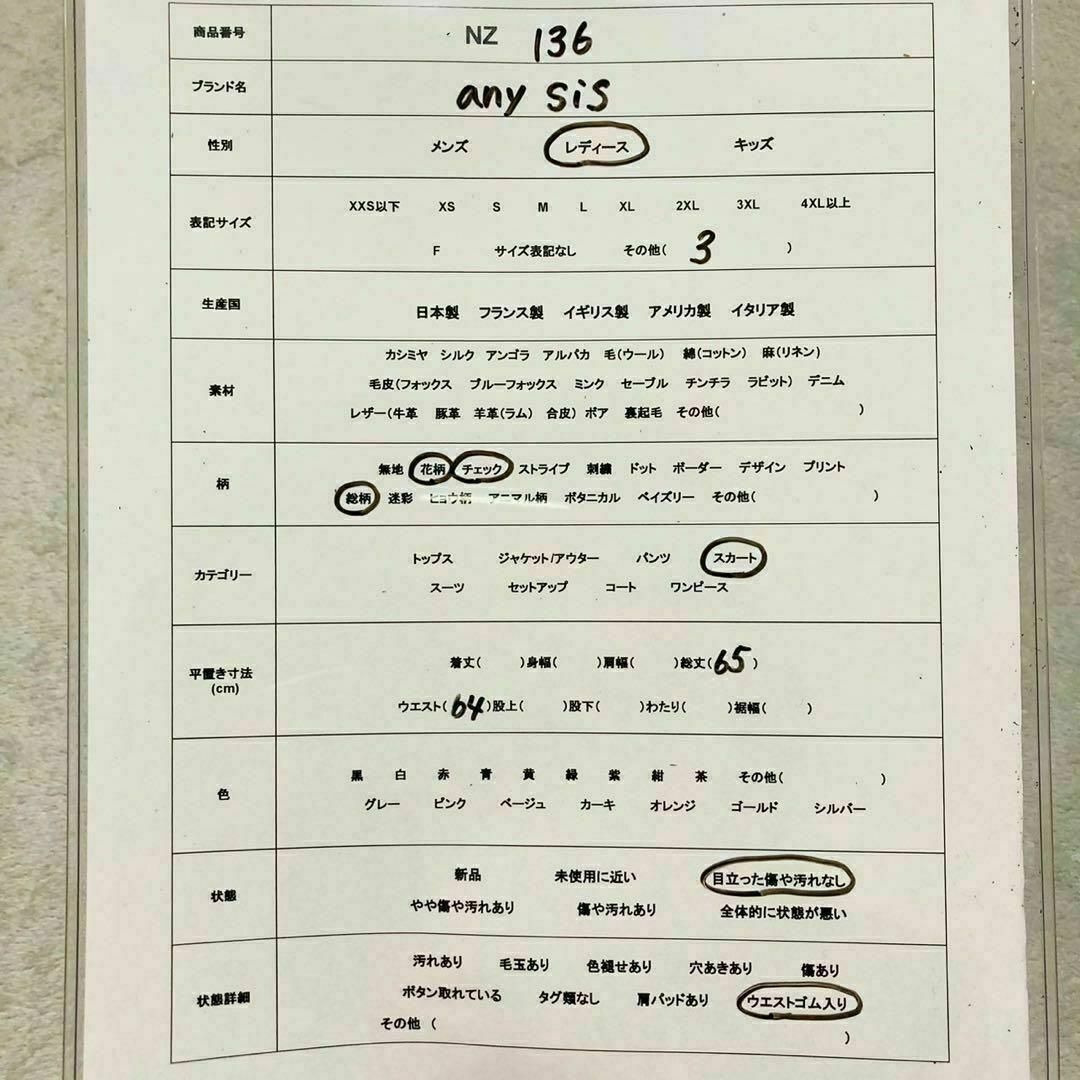 商品番号 NZ 136
ブランド名 any sis
性別 メンズ レディース キッズ
表記サイズ
XXS以下 XS S M L XL 2XL 3XL 4XL以上
F サイズ表記なし その他( 3 )
生産国 日本製 フランス製 イギリス製 アメリカ製 イタリア製
素材
カシミヤ シルク アンゴラ アルパカ 毛(ウール) 綿(コットン) 麻(リネン)
毛皮(フォックス ブルーフォックス ミンク セーブル チンチラ ラビット) デニム
レザー(牛革 豚革 羊革(ラム) 合皮) ボア 裏起毛 その他( )
柄
無地 花柄 チェック ストライプ 刺繍 ドット ボーダー デザイン プリント
総柄 迷彩 ヒョウ柄 アニマル柄 ボタニカル ペイズリー その他( )
カテゴリー
トップス ジャケット/アウター パンツ スカート
スーツ セットアップ コート ワンピース
平置き寸法
(cm)
着丈( )身幅( )肩幅( )総丈( 65 )
ウエスト( 64 )股上( )股下( )わたり( )裾幅( )
色
黒 白 赤 青 黄 緑 紫 紺 茶 その他( )
グレー ピンク ベージュ カーキ オレンジ ゴールド シルバー
状態
新品 未使用に近い 目立った傷や汚れなし
やや傷や汚れあり 傷や汚れあり 全体的に状態が悪い
状態詳細
汚れあり 毛玉あり 色褪せあり 穴あきあり 傷あり
ボタン取れている タグ類なし 肩パッドあり ウエストゴム入り
その他 ( )